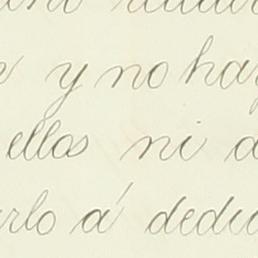 y no hay
ellos ni a
rlo á dedic